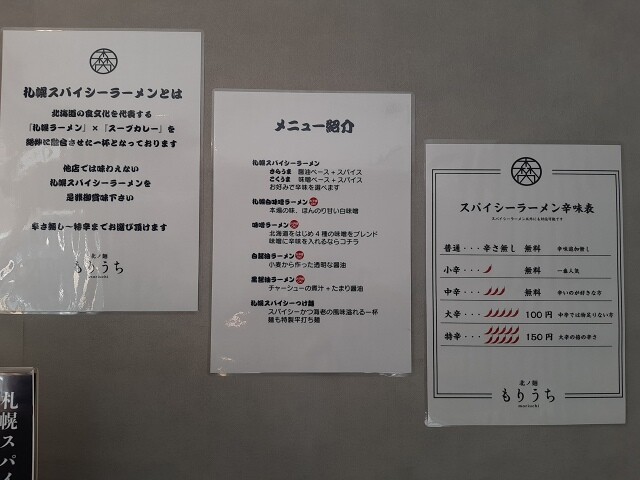 札幌スパイシーラーメンとは
北海道の食文化を代表する
『札幌ラーメン』×『スープカレー』を
絶妙に融合させた一杯となっております
他店では味わえない
札幌スパイシーラーメンを
是非御賞味下さい
辛さ無し〜特辛までお選び頂けます
北ノ麺
もりうち
moriuchi
メニュー紹介
札幌スパイシーラーメン
からうま 醤油ベース+スパイス
こくうま 味噌ベース+スパイス
お好みで辛味を選べます
札幌白味噌ラーメン
本場の味、ほんのり甘い白味噌
味噌ラーメン
北海道をはじめ4種の味噌をブレンド
味噌に辛味を入れるならコチラ
白醤油ラーメン
小麦から作った透明な醤油
黒醤油ラーメン
チャーシューの煮汁+たまり醤油
札幌スパイシーつけ麺
スパイシーかつ海老の風味溢れる一杯
麺も特製平打ち麺
スパイシーラーメン辛味表
スパイシーラーメン以外にも対応可能です
普通・・・辛さ無し 無料 辛味追加無し
小辛・・・ 無料 一番人気
中辛・・・ 無料 辛いのが好きな方
大辛・・・ 100円 中辛では物足りない方
特辛・・・ 150円 大辛の倍の辛さ
北ノ麺
もりうち
moriuchi
札幌スパイ